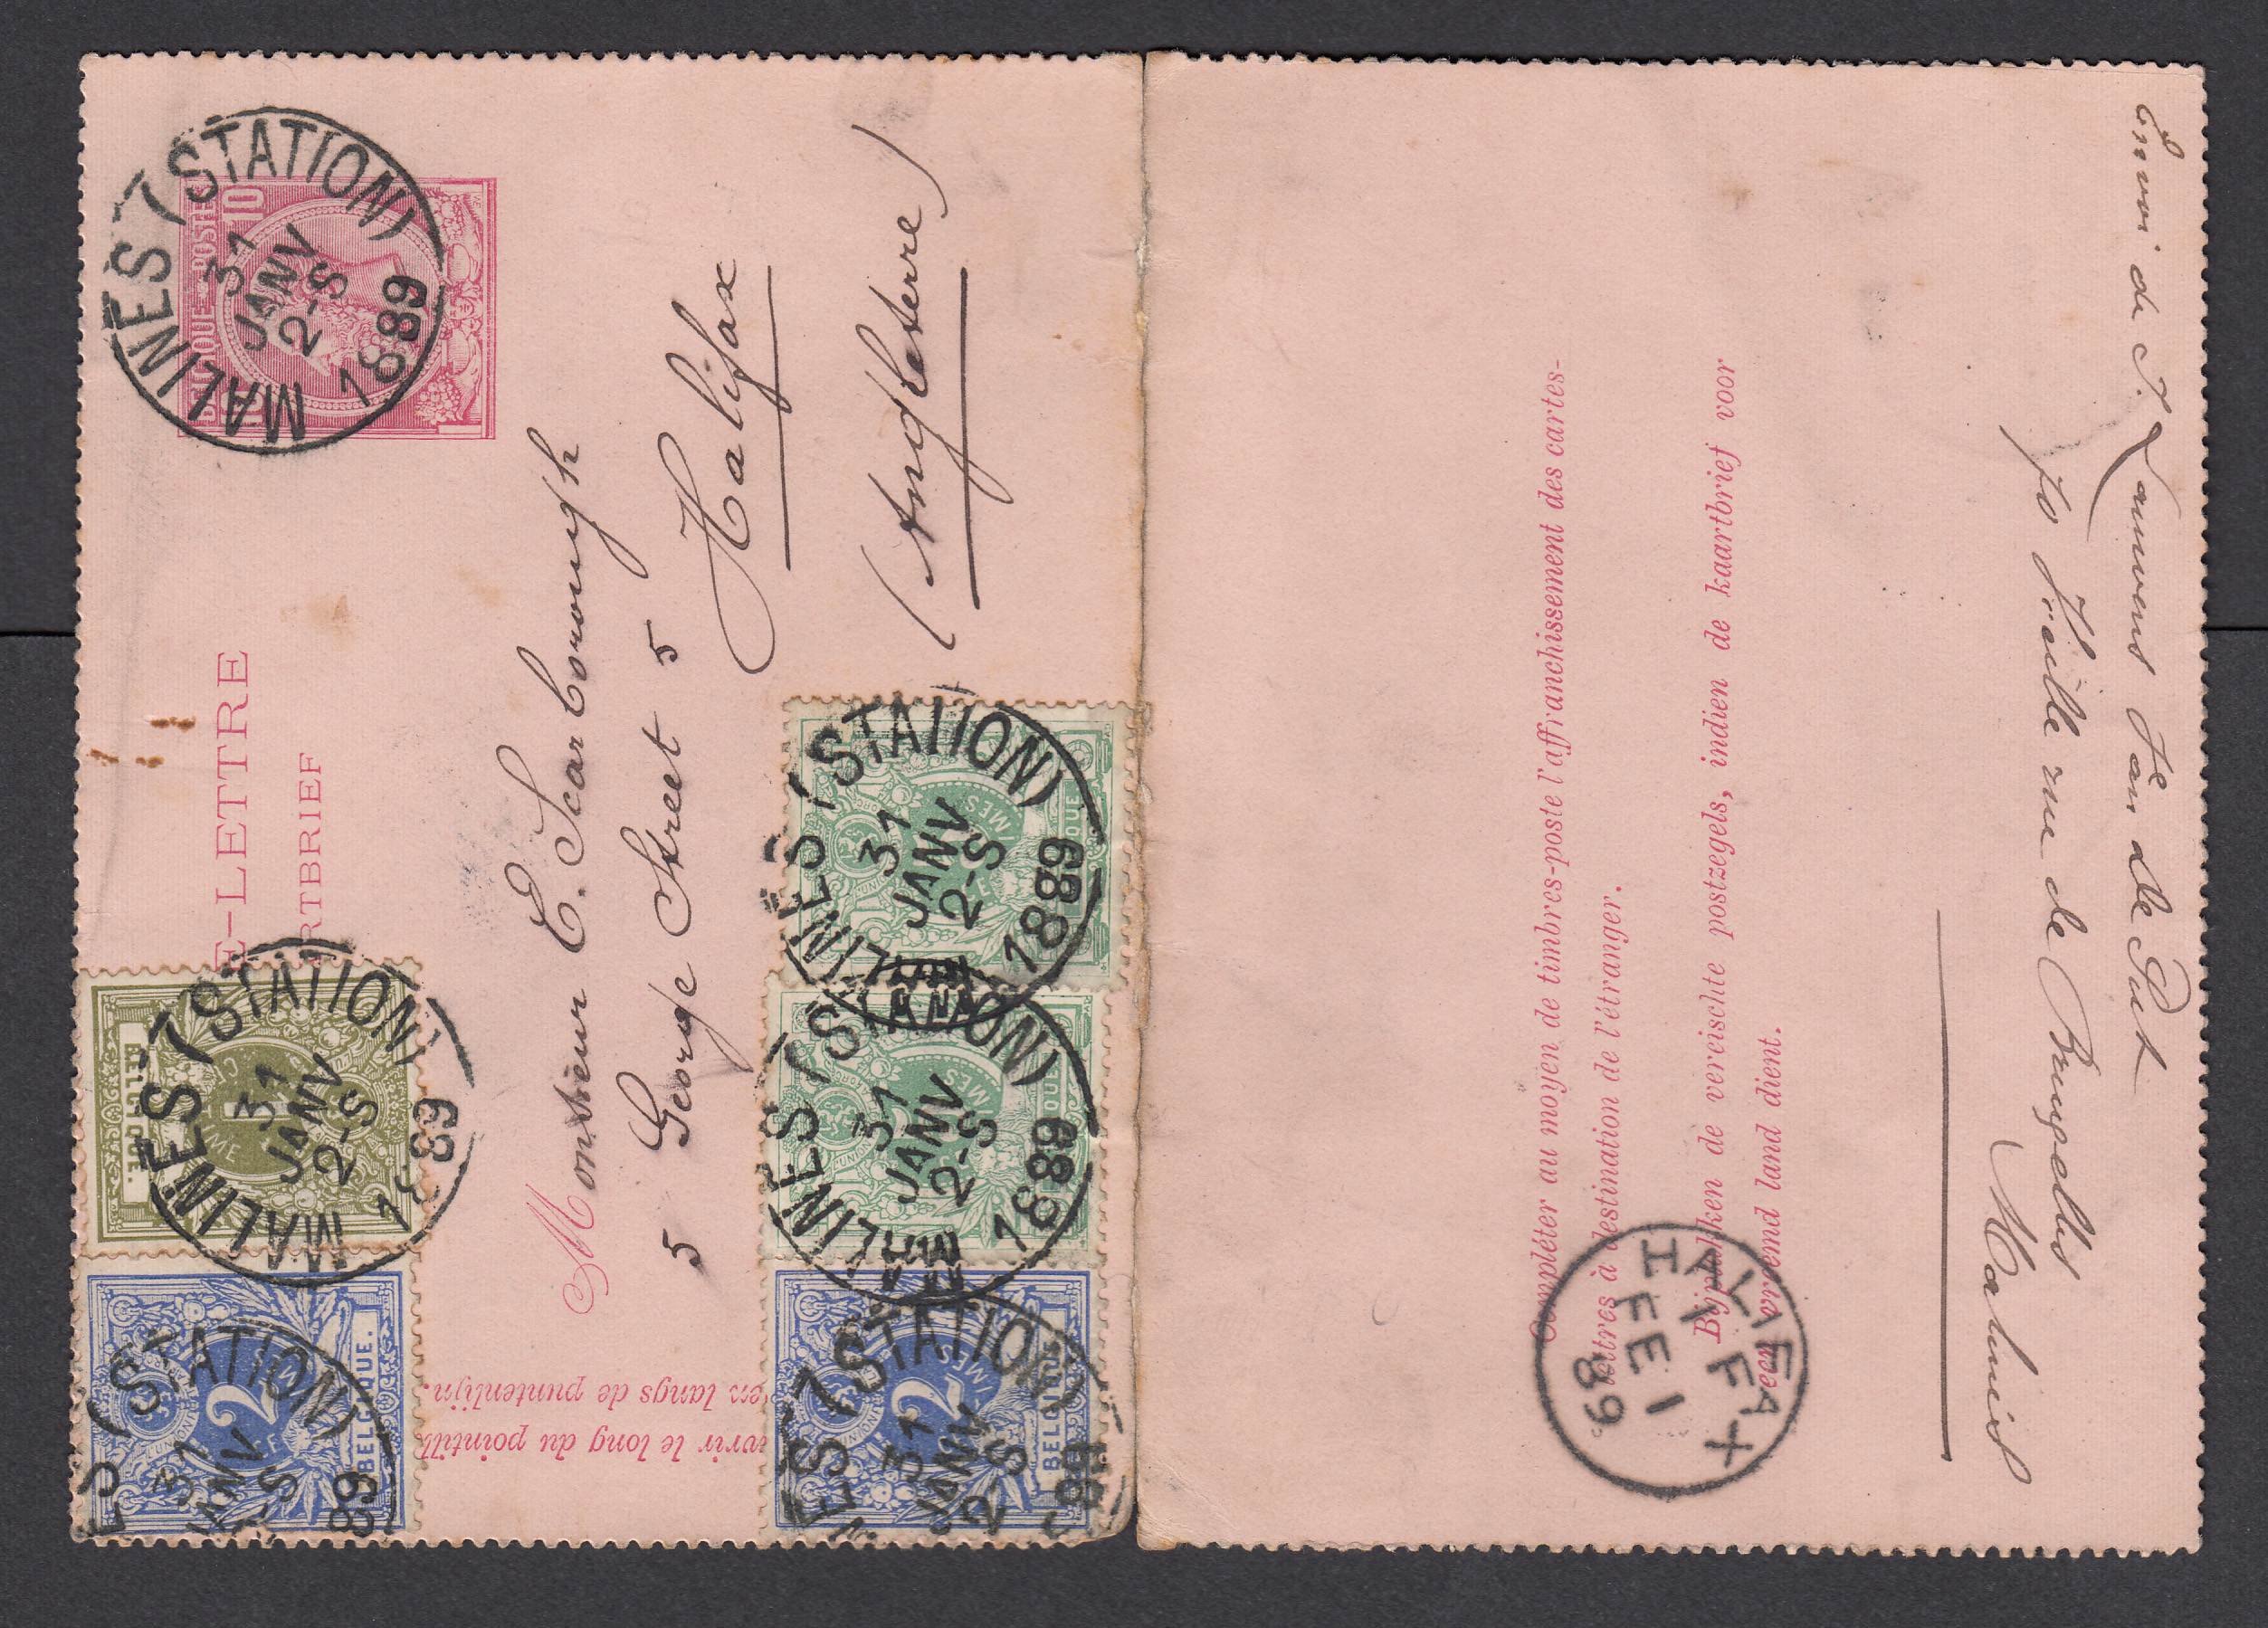 BELGIQUE POSTES
10
MALINES (STATION)
31
JANV
2-S
1889
E-LETTRE
RTBRIEF
Monsieur E. Scarborough
5 George Street 5
Halifax
(Angleterre)
MALINES (STATION)
31
JANV
2-S
1889
BELGIQUE.
MALINES (STATION)
31
JANV
2-S
1889
MALINES (STATION)
31
JANV
2-S
1889
2
BELGIQUE.
ES (STATION)
31
JANV
2-S
89
2
BELGIQUE.
ES (STATION)
31
JANV
2-S
89
vrir le long du pointill
en langs de puntenlijn.
Compléter au moyen de timbres-poste l'affranchissement des cartes-
lettres à destination de l'étranger.
Bijplakken de vereischte postzegels, indien de kaartbrief voor
een vreemd land dient.
HALIFAX
1 F
FE 1
89
A
Envoi de J. Lauwens Jan de Put
rue de Bruxelles
Malines